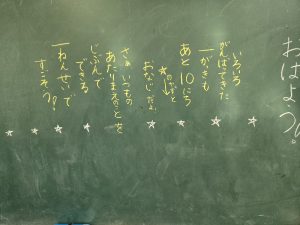 おはよう!
いろいろ
がんばってきた
一がっきも
あと10にち
☆のかずと
おなじだよ
さぁいつもの
あたりまえのことを
じぶんで
できる
一ねんせいで
すごそう!